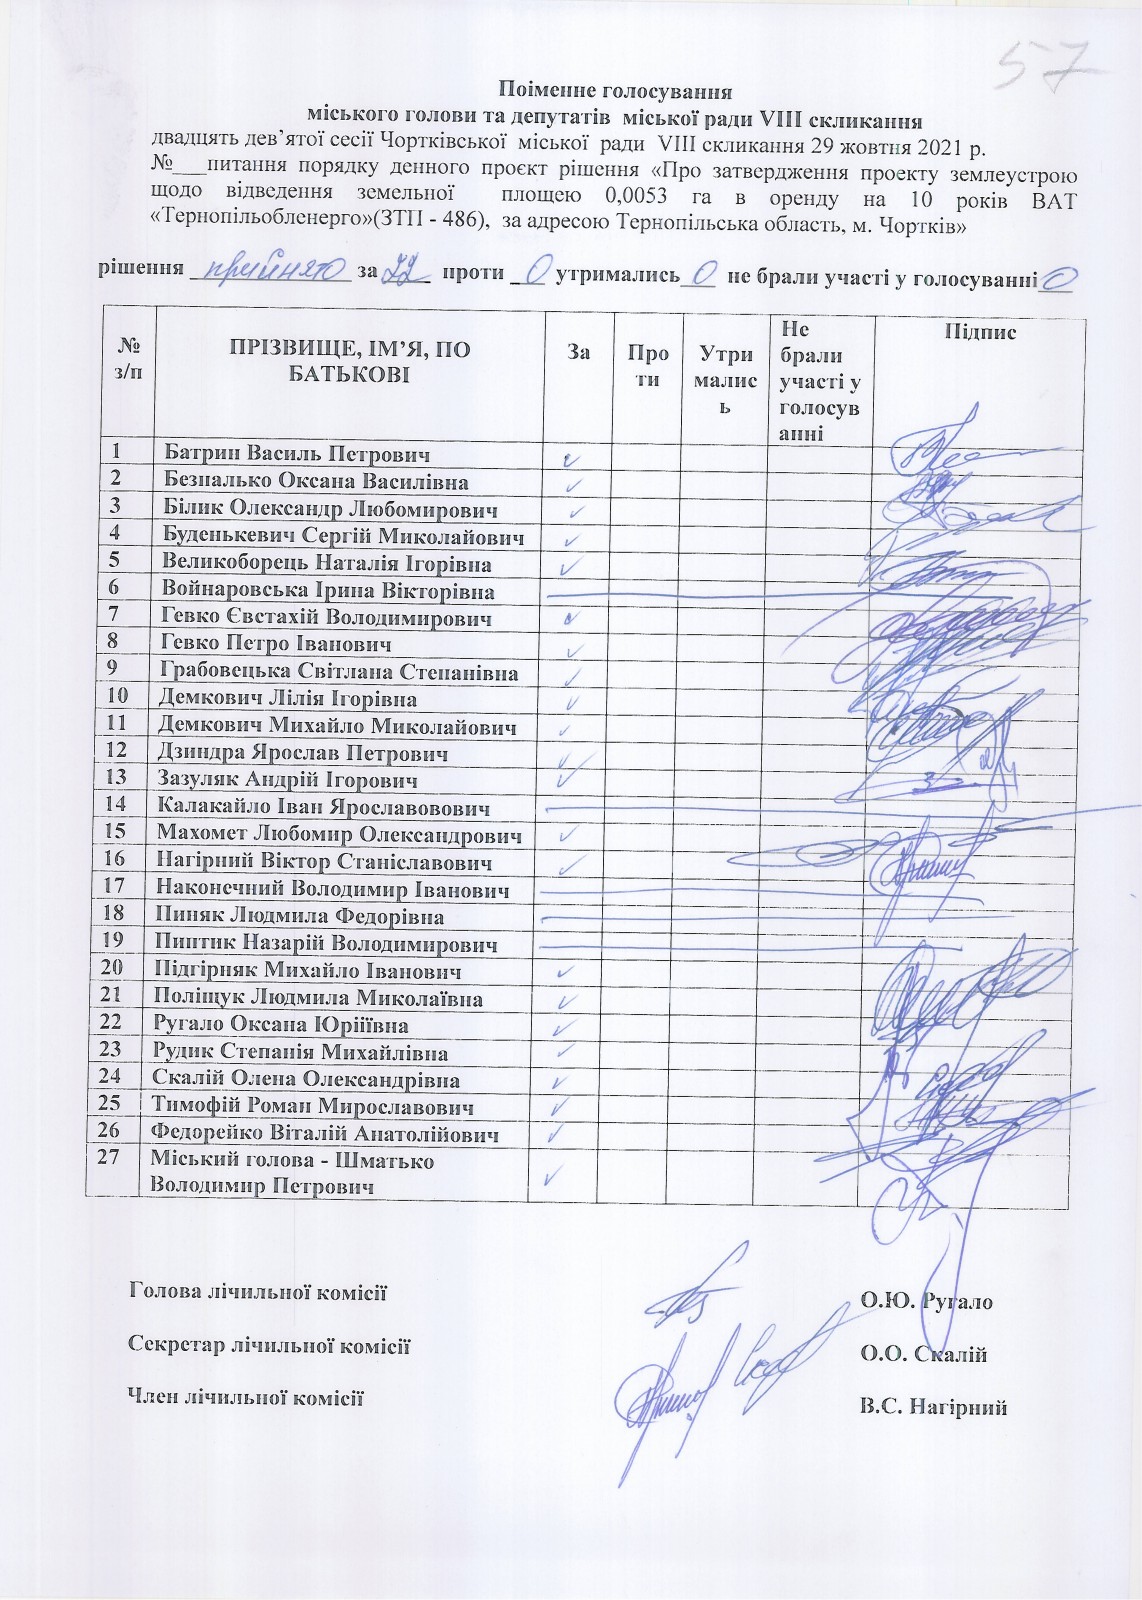 57
Поіменне голосування
міського голови та депутатів міської ради VIII скликання
двадцять дев’ятої сесії Чортківської міської ради VIII скликання 29 жовтня 2021 р.
№___питання порядку денного проєкт рішення «Про затвердження проекту землеустрою
щодо відведення земельної площею 0,0053 га в оренду на 10 років ВАТ
«Тернопільобленерго»(ЗТП - 486), за адресою Тернопільська область, м. Чортків»
рішення прийнято за 22 проти 0 утримались 0 не брали участі у голосуванні 0
№ з/п ПРІЗВИЩЕ, ІМ’Я, ПО БАТЬКОВІ За Проти Утрималис ь Не брали участі у голосув анні Підпис
1 Батрин Василь Петрович ✓
2 Безпалько Оксана Василівна ✓
3 Білик Олександр Любомирович ✓
4 Буденькевич Сергій Миколайович ✓
5 Великоборець Наталія Ігорівна ✓
6 Войнаровська Ірина Вікторівна
7 Гевко Євстахій Володимирович ✓
8 Гевко Петро Іванович ✓
9 Грабовецька Світлана Степанівна ✓
10 Демкович Лілія Ігорівна ✓
11 Демкович Михайло Миколайович ✓
12 Дзиндра Ярослав Петрович ✓
13 Зазуляк Андрій Ігорович ✓
14 Калакайло Іван Ярославовович
15 Махомет Любомир Олександрович ✓
16 Нагірний Віктор Станіславович ✓
17 Наконечний Володимир Іванович
18 Пиняк Людмила Федорівна
19 Пиптик Назарій Володимирович
20 Підгірняк Михайло Іванович ✓
21 Поліщук Людмила Миколаївна ✓
22 Ругало Оксана Юріїівна ✓
23 Рудик Степанія Михайлівна ✓
24 Скалій Олена Олександрівна ✓
25 Тимофій Роман Мирославович ✓
26 Федорейко Віталій Анатолійович ✓
27 Міський голова - Шматько
Володимир Петрович ✓
Голова лічильної комісії О.Ю. Ругало
Секретар лічильної комісії О.О. Скалій
Член лічильної комісії В.С. Нагірний